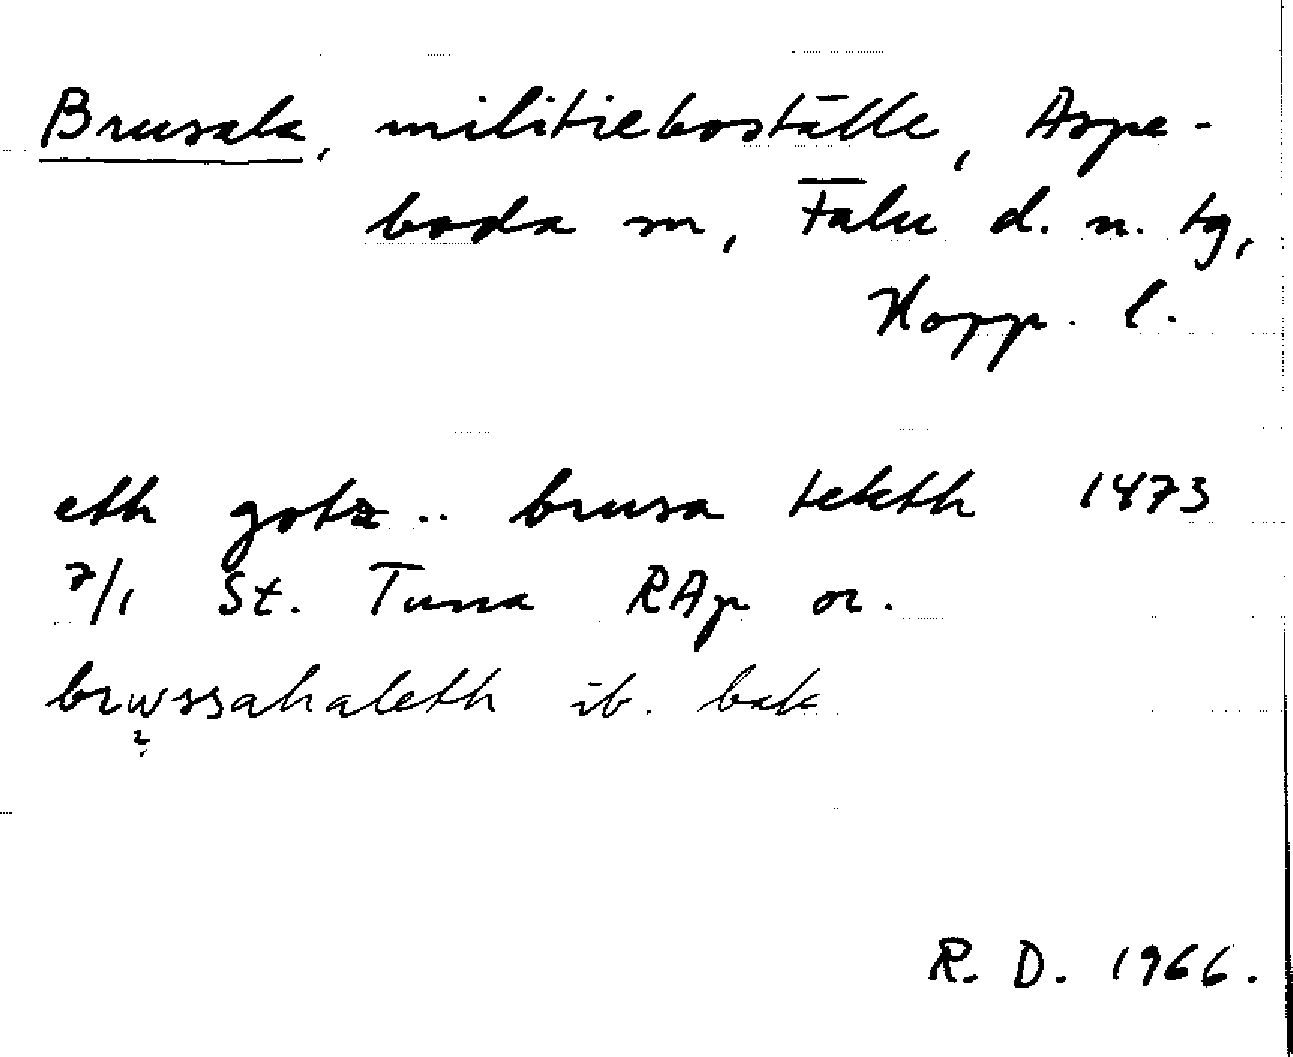 Brusala, militieboställe, Aspe-
boda sn, Falu d. n. tg,
Kopp. l.
eth gotz .. brusa tekth 1473
7/1 St. Tuna RAp or.
brwssahaleth ib. bak
?
R. D. 1966.